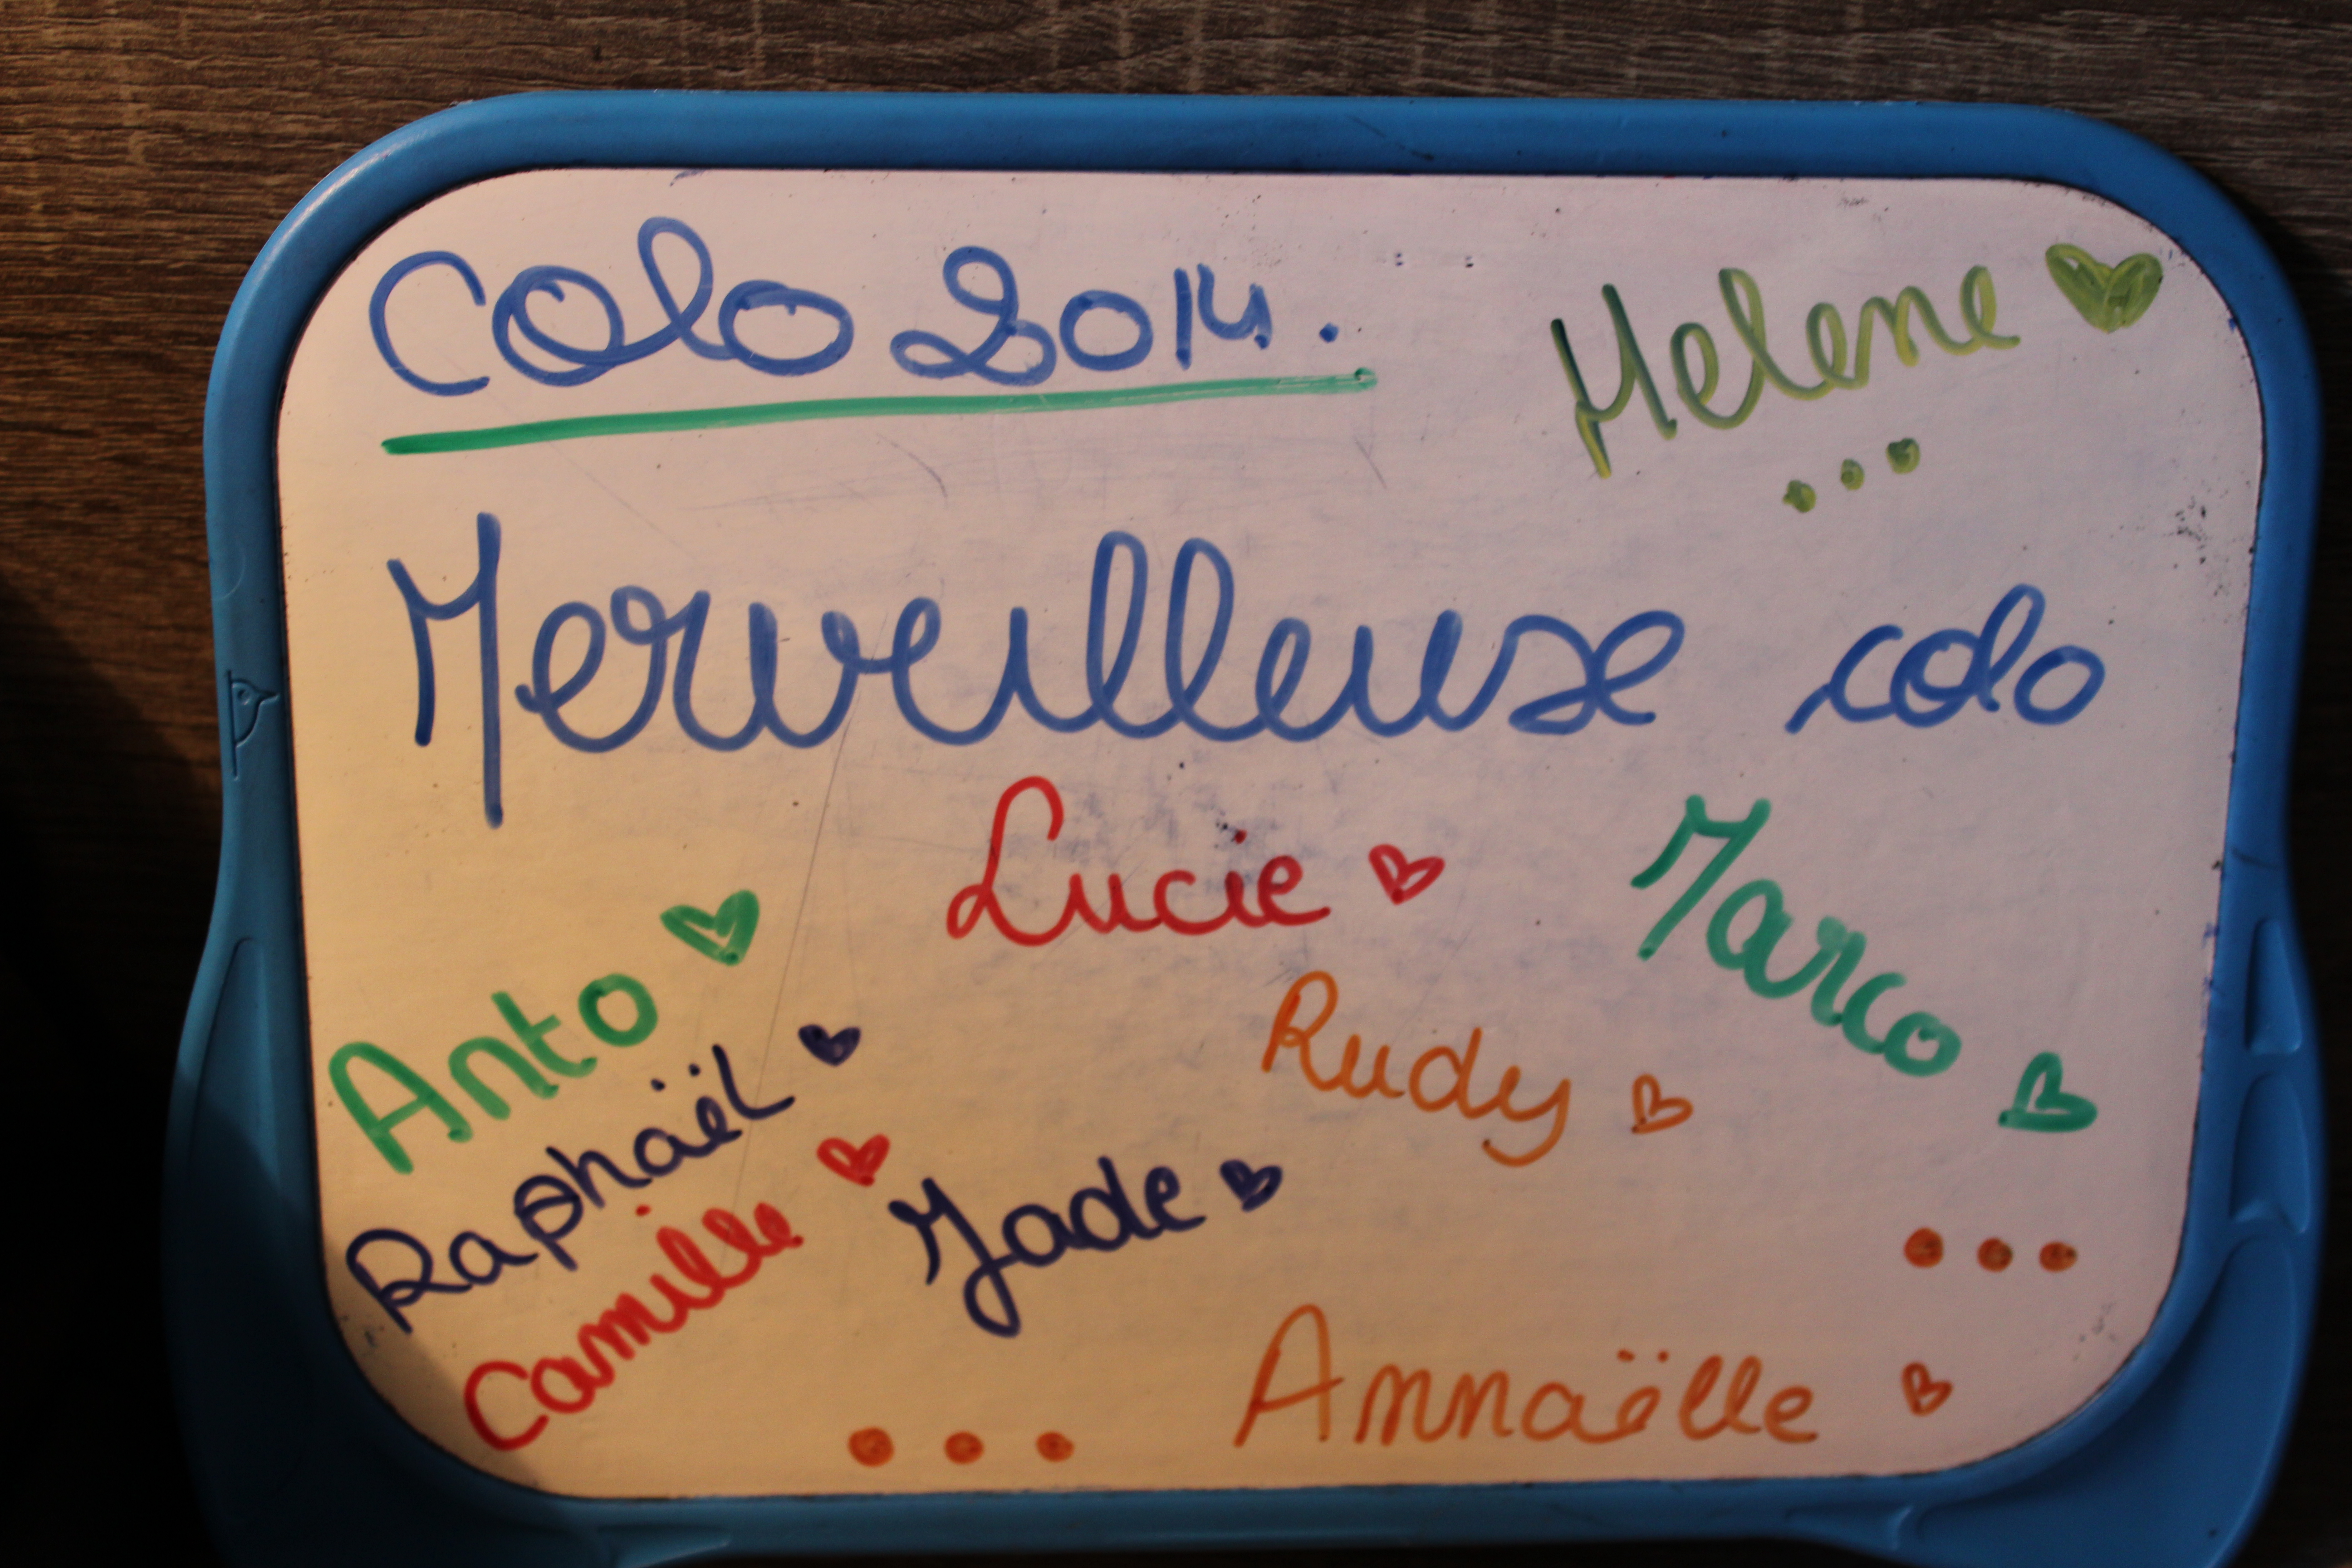 Colo 2014.
Helene
...
Merveilleuse colo
Lucie
Marco
Anto
Rudy
Raphaël
Jade
Camille
...
Annaëlle
...